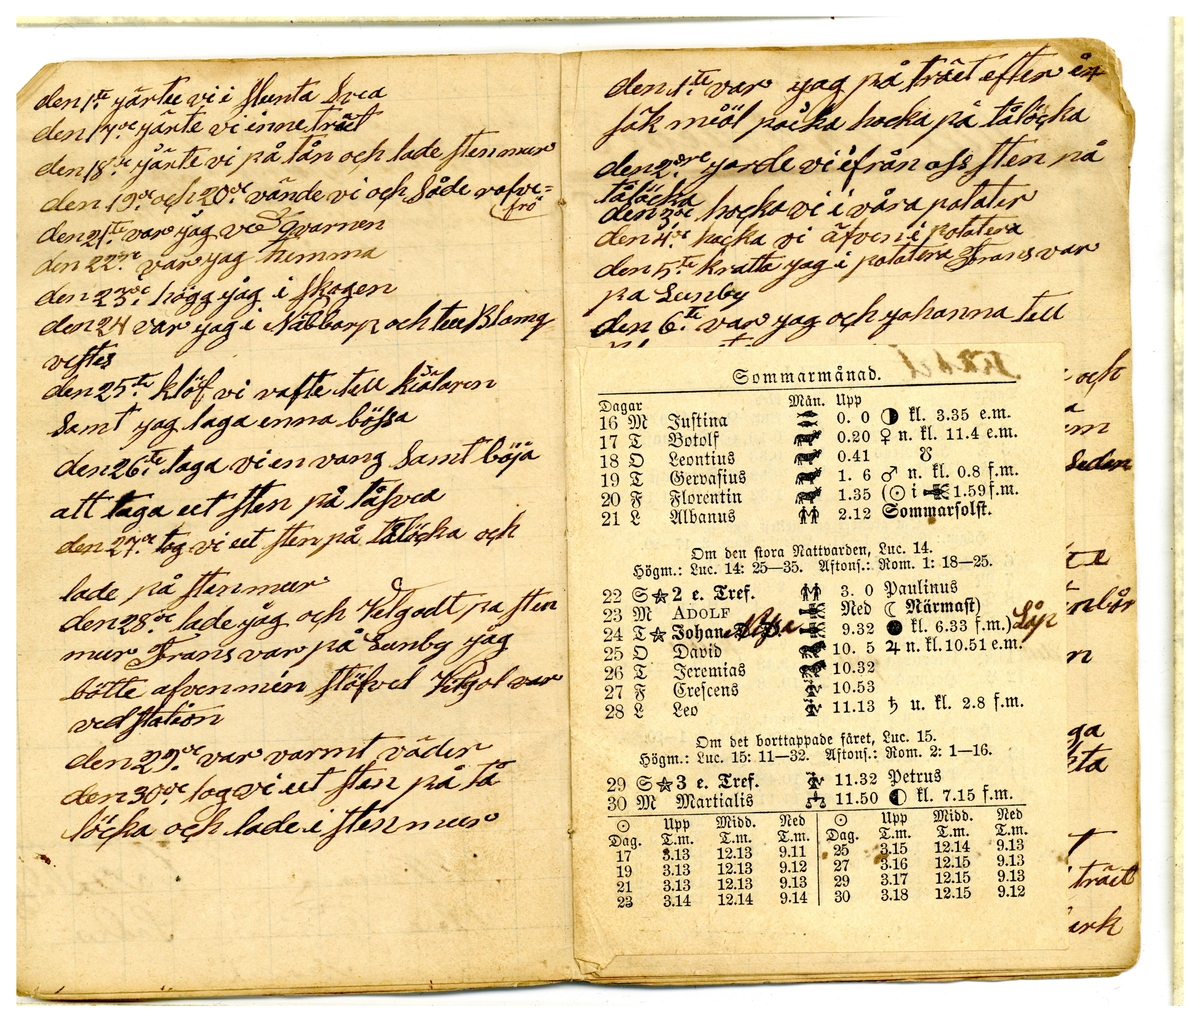 den 1te järtee vi i slunta Svea
den 17de gärte vi inne träet
den 18de gärte vi på tån och lade stenmur
den 19de och 20de vände vi och Såde rofve=
frö
den 21te var yag ved Qvarnen
den 22re var yag hemma
den 23de högg yåg i skogen
den 24 var yag i Näbbarp och teu Blamg
vistes
den 25te klöf vi vafte tell kiälaren
samt yag laga enna bössa
den 26te laga vi en vang Samt böja
att taga eet sten på tåsvea
den 27de tog vi eet sten på tålöcka och
lade på stenmur
den 28de lade yåg och Velgodt pa sten
mur Frans var på Lunby yåg
bötte afven min stöfvel Velgot var
ved station
den 29de var varmt väder
den 30de tog vi eet sten på tå
löcka och lade i stenmur
den 1te var yag på träet efter en
säk miöl påcka hocka på tålöcka
den 2dre jorde vi ifrån oss sten på
tålöcka
den 3de hocka vi i våra potater
den 4de hacka vi äfven i potatera
den 5te kratta yag i potatera Frans var
pa Lunby
den 6te var yag och yohanna tell
och
Seden
Sommarmånad.
Dagar Mån. Upp
16 M Justina 0. 0 ◑ kl. 3.35 e.m.
17 T Botolf 0.20 ♀ n. kl. 11.4 e.m.
18 O Leontius 0.41 ☋
19 T Gervasius 1. 6 ♂ n. kl. 0.8 f.m.
20 F Florentin 1.35 (☉ i 1.59 f.m.
21 L Albanus 2.12 Sommarsolst.
Om den stora Nattvarden, Luc. 14.
Högm.: Luc. 14: 25—35. Aftons.: Rom. 1: 18—25.
22 S ☆ 2 e. Tref. 3. 0 Paulinus
23 M ADOLF Ned ☾ Närmast)
24 T ☆ Johan 9.32 ● kl. 6.33 f.m.)
25 O David 10. 5 ♃ n. kl. 10.51 e.m.
26 T Jeremias 10.32
27 F Crescens 10.53
28 L Leo 11.13 ♄ u. kl. 2.8 f.m.
Om det borttappade fåret, Luc. 15.
Högm.: Luc. 15: 11—32. Aftons.: Rom. 2: 1—16.
29 S ☆ 3 e. Tref. 11.32 Petrus
30 M Martialis 11.50 ◐ kl. 7.15 f.m.
☉ Upp Midd. Ned ☉ Upp Midd. Ned
Dag. T.m. T.m. T.m. Dag. T.m. T.m. T.m.
17 3.13 12.13 9.11 25 3.15 12.14 9.13
19 3.13 12.13 9.12 27 3.16 12.15 9.13
21 3.13 12.13 9.13 29 3.17 12.15 9.13
23 3.14 12.14 9.14 30 3.18 12.15 9.12
träet